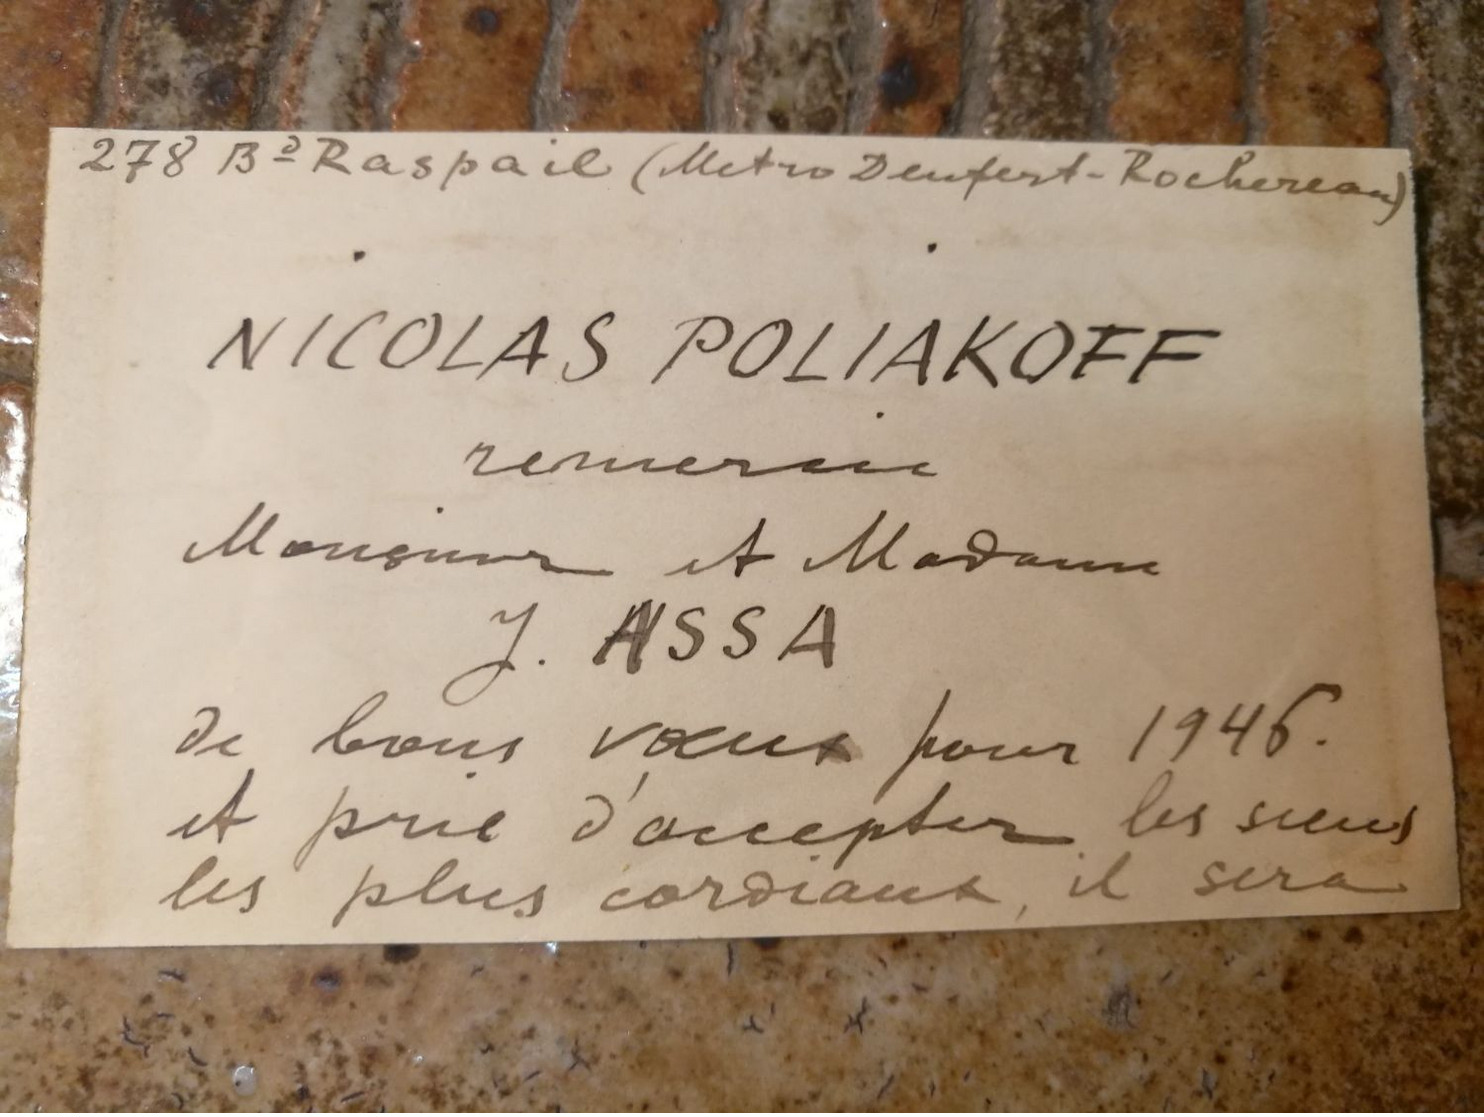 278 Bd Raspail (Metro Denfert-Rochereau)
NICOLAS POLIAKOFF
remercie
Monsieur et Madame
J. ASSA
de bons vœux pour 1946.
et prie d'accepter les siens
les plus cordiaux, il sera